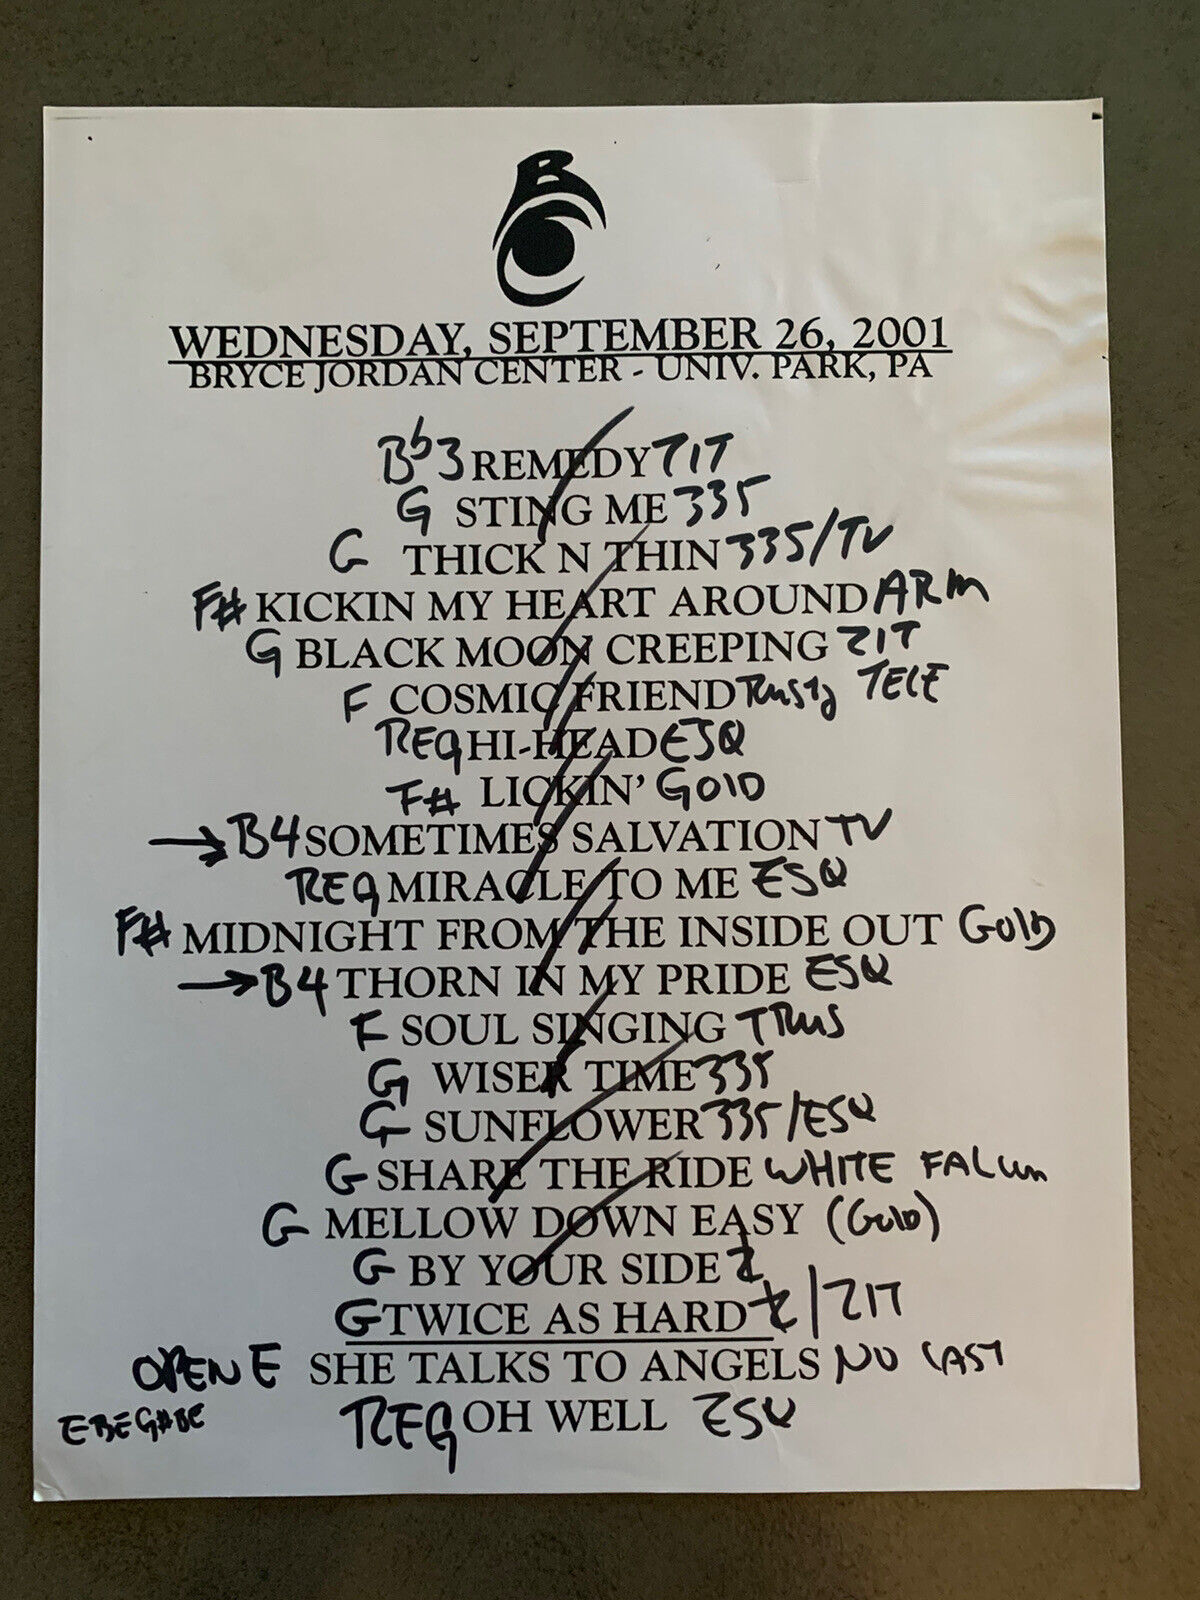 BC
WEDNESDAY, SEPTEMBER 26, 2001
BRYCE JORDAN CENTER - UNIV. PARK, PA
Bb3 REMEDY ZIT
G STING ME 335
G THICK N THIN 335/TV
F# KICKIN MY HEART AROUND ARM
G BLACK MOON CREEPING ZIT
F COSMIC FRIEND RUSTY TELE
REG HI-HEAD ESQ
F# LICKIN' GOLD
→ B4 SOMETIMES SALVATION TV
REG MIRACLE TO ME ESQ
F# MIDNIGHT FROM THE INSIDE OUT GOLD
→ B4 THORN IN MY PRIDE ESQ
F SOUL SINGING TRUS
G WISER TIME 335
G SUNFLOWER 335/ESQ
G SHARE THE RIDE WHITE
G MELLOW DOWN EASY (GOLD)
G BY YOUR SIDE Z
G TWICE AS HARD Z/ZIT
OPEN E SHE TALKS TO ANGELS NO CAST
EBEG#BE REG OH WELL ESQ